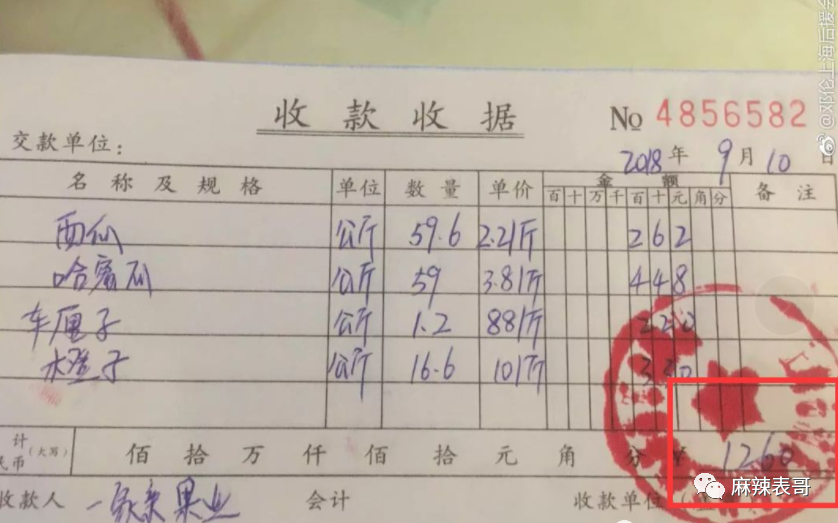 @邓伦上海后援会
收款收据
№ 4856582
交款单位：
2018年 9月10日
名称及规格 单位 数量 单价 金额 备注
百十万千百十元角分
西仙 公斤 59.6 2.2/斤 262
哈密瓜 公斤 59 3.8/斤 448
车厘子 公斤 1.2 88/斤 220
水橙子 公斤 16.6 10/斤 330
计
民币 (大写) 佰拾万仟佰拾元角分￥1260
收款人 会计 收款单位
果业
麻辣表哥